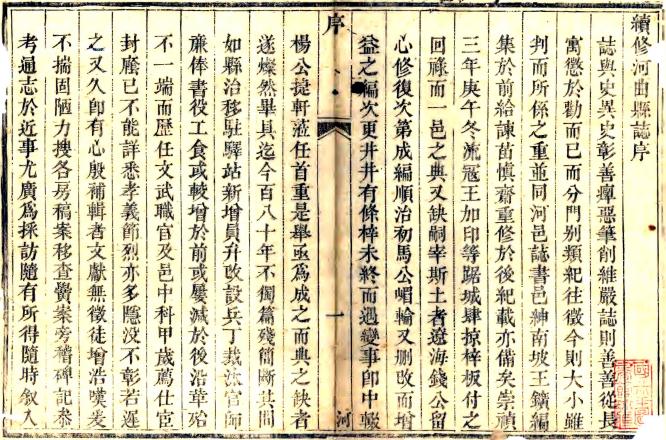 續修河曲縣誌序
誌與史異史彰善癉惡筆削維嚴誌則善善從長
寓懲於勸而已而分門别類紀往徵今則大小雖
判而所係之重並同河邑誌書邑紳南坡王鑛編
集於前給諫苗慎齋重修於後紀載亦備矣崇禎
三年庚午冬流冦王加印等踞城肆掠梓板付之
回祿而一邑之典又缺嗣宰斯土者遼海錢公留
心修復次第成編順治初馬公嵋輸又删改而增
益之編次更井井有條梓未終而遇變事即中輟
序
一
河
楊公㨗軒蒞任首重是舉亟爲成之而典之缺者
遂燦然畢具迄今百八十年不獨篇殘簡斷其間
如縣治移駐驛站新增員弁改設兵丁裁汰官師
亷俸書役工食或較增於前或屢減於後沿革殆
不一端而歷任文武職官及邑中科甲歲薦仕宦
封廕已不能詳悉孝義節烈亦多隱没不彰若遲
之又久即有心殷補輯者文獻無徵徒增浩嘆爰
不揣固陋力搜各房稿案移查黌案旁稽碑記叅
考通志於近事尤廣爲採訪隨有所得隨時叙入